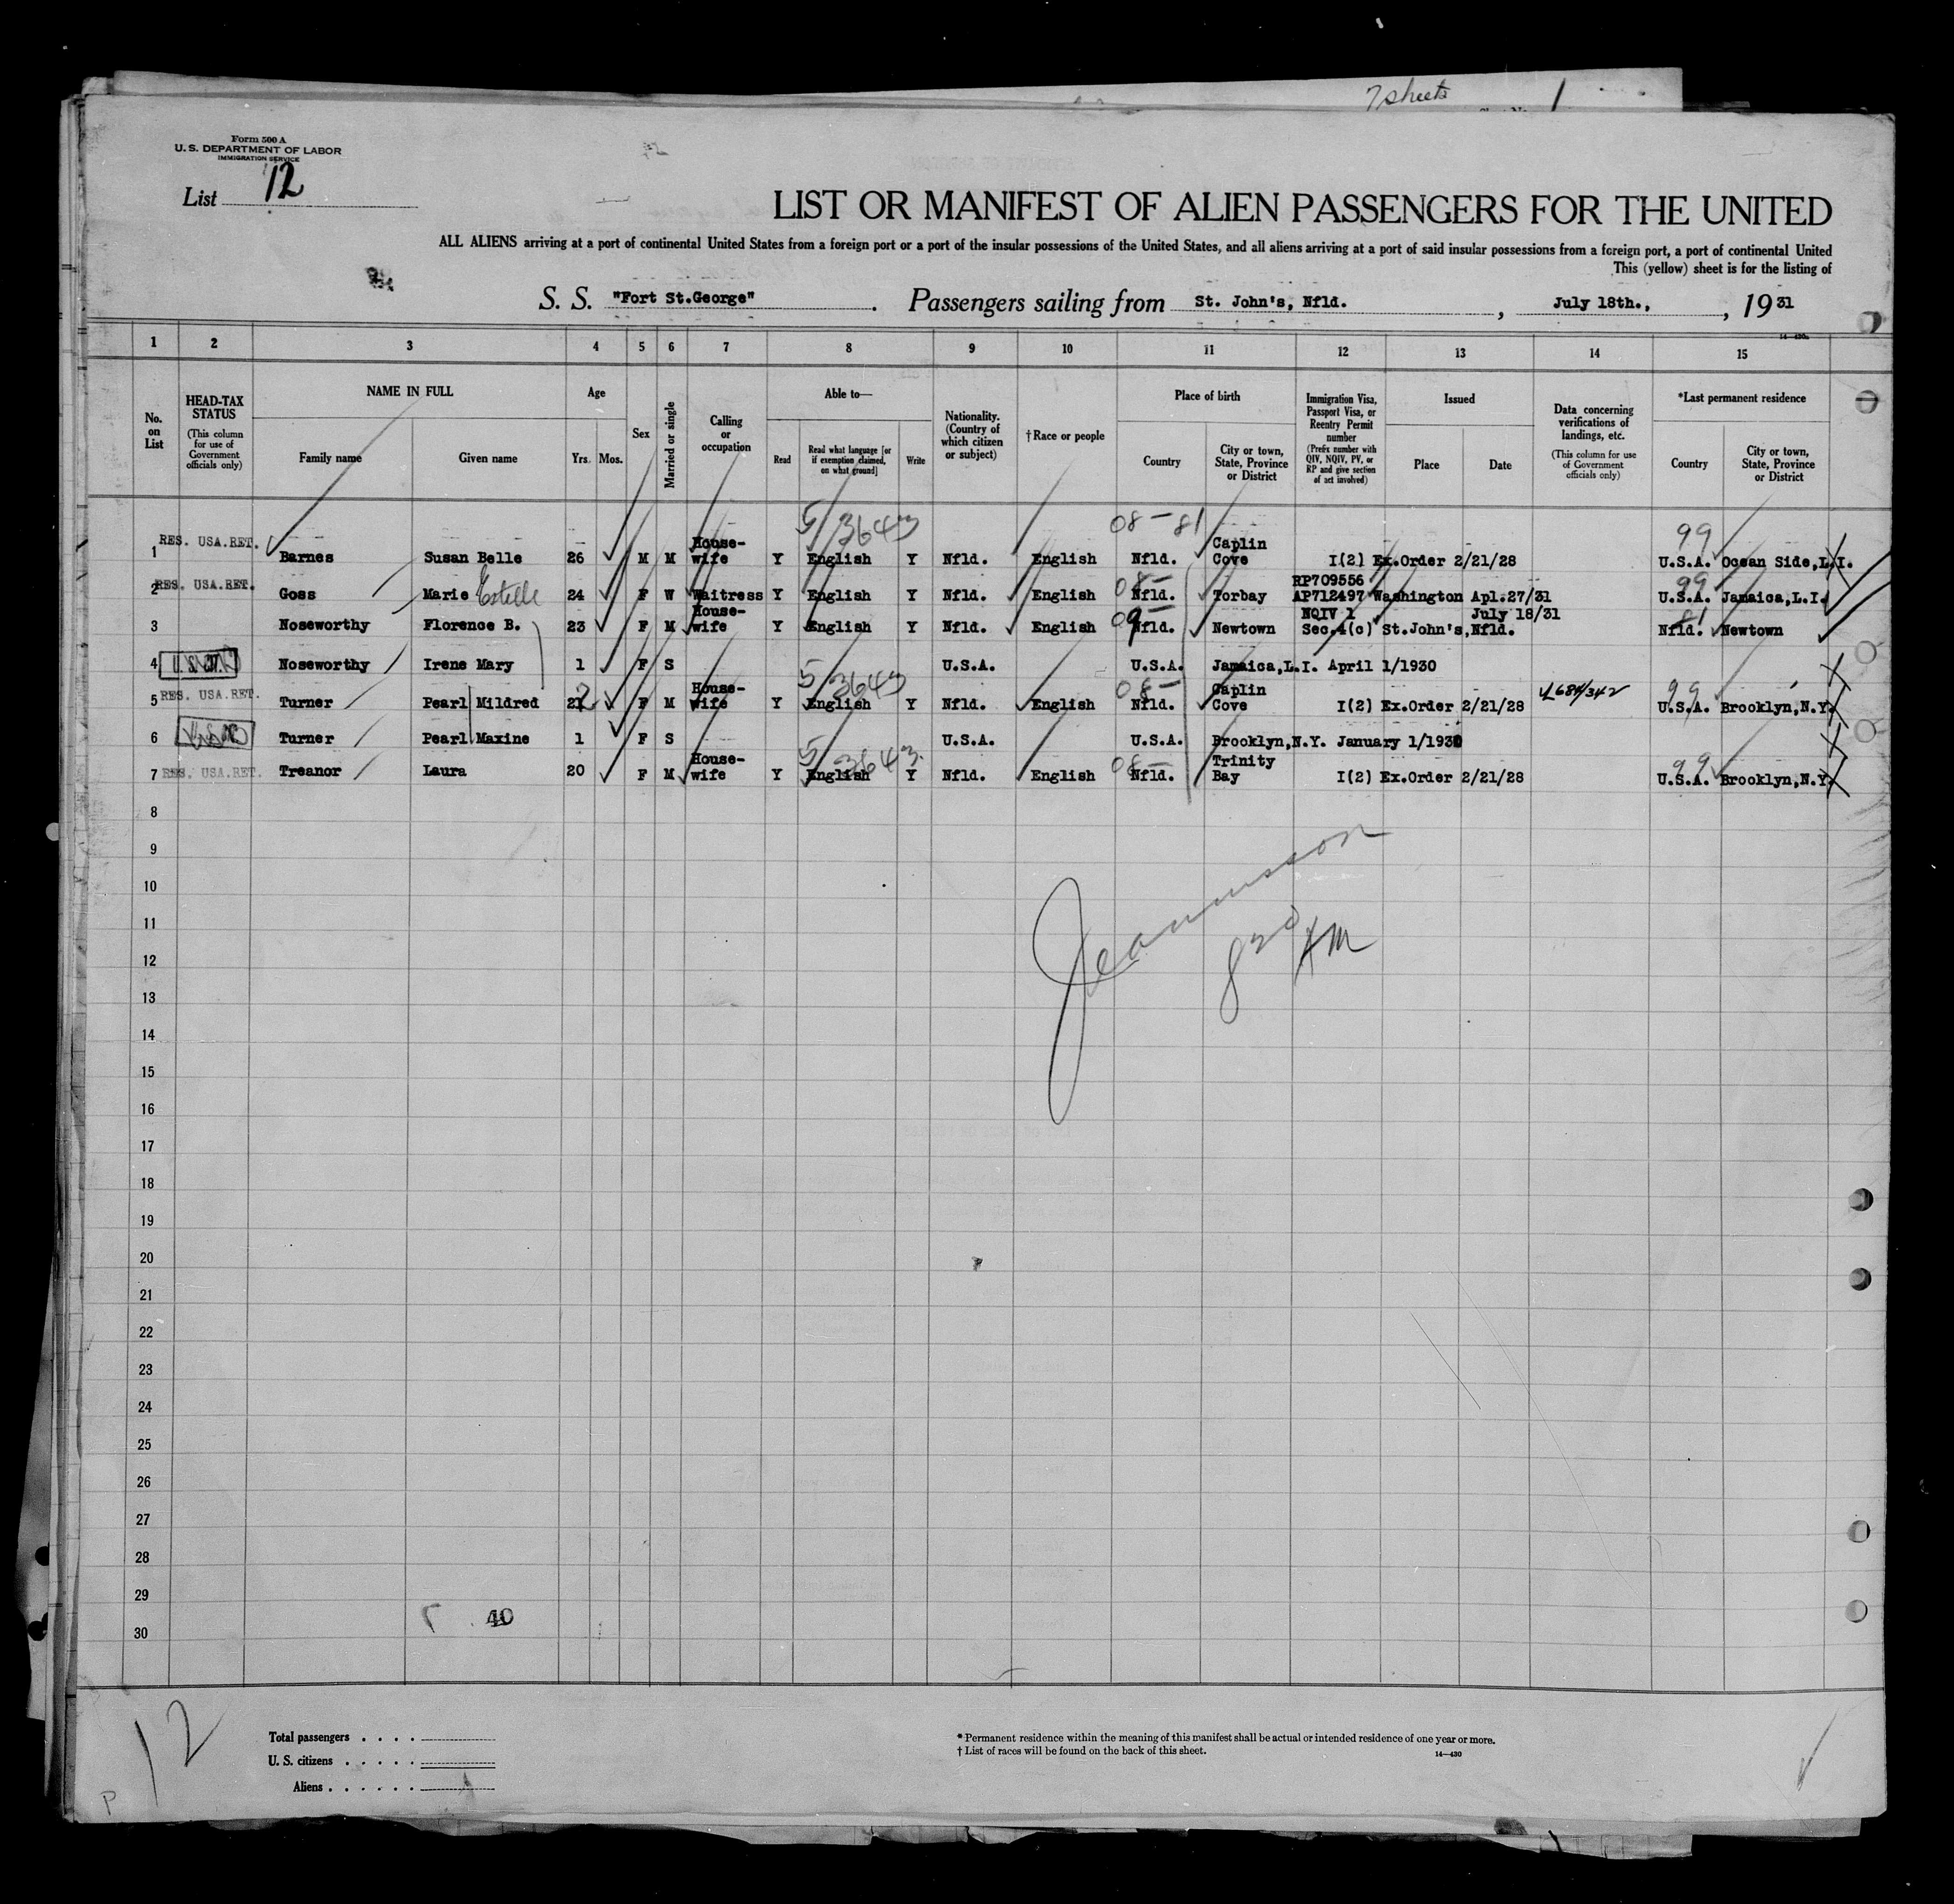 7 sheets 1
Form 500 A
U. S. DEPARTMENT OF LABOR
IMMIGRATION SERVICE
List 12
LIST OR MANIFEST OF ALIEN PASSENGERS FOR THE UNITED
ALL ALIENS arriving at a port of continental United States from a foreign port or a port of the insular possessions of the United States, and all aliens arriving at a port of said insular possessions from a foreign port, a port of continental United
This (yellow) sheet is for the listing of
S. S. "Fort St.George" . Passengers sailing from St. John's, Nfld. , July 18th., , 19 31
14—430a
1 2 3 4 5 6 7 8 9 10 11 12 13 14 15
No. on List
HEAD-TAX STATUS (This column for use of Government officials only)
NAME IN FULL
Family name Given name
Age
Yrs. Mos.
Sex
Married or single
Calling or occupation
Able to—
Read Read what language [or if exemption claimed, on what ground] Write
Nationality. (Country of which citizen or subject)
†Race or people
Place of birth
Country City or town, State, Province or District
Immigration Visa, Passport Visa, or Reentry Permit number (Prefix number with QIV, NQIV, PV, or RP and give section of act involved)
Issued
Place Date
Data concerning verifications of landings, etc. (This column for use of Government officials only)
*Last permanent residence
Country City or town, State, Province or District
5/3643 08-81 99
1 RES. USA.RET. Barnes Susan Belle 26 M M House-wife Y English Y Nfld. English Nfld. Caplin Cove I(2) Ex.Order 2/21/28 U.S.A. Ocean Side,L.I.
08- 99
2 RES. USA.RET. Goss Marie Estelle 24 F W Waitress Y English Y Nfld. English Nfld. Torbay RP709556 AP712497 Washington Apl.27/31 U.S.A. Jamaica,L.I.
09- 81
3 Noseworthy Florence B. 23 F M House-wife Y English Y Nfld. English Nfld. Newtown NQIV 1 Sec.4(c) St.John's,Nfld. July 18/31 Nfld. Newtown
4 Noseworthy Irene Mary 1 F S U.S.A. U.S.A. Jamaica,L.I. April 1/1930
5 3643 08- 99
5 RES. USA.RET. Turner Pearl Mildred 22 F M House-wife Y English Y Nfld. English Nfld. Caplin Cove I(2) Ex.Order 2/21/28 U.S.A. Brooklyn,N.Y.
6 Turner Pearl Maxine 1 F S U.S.A. U.S.A. Brooklyn,N.Y. January 1/1930
5 3643 08- 99
7 RES. USA.RET. Treanor Laura 20 F M House-wife Y English Y Nfld. English Nfld. Trinity Bay I(2) Ex.Order 2/21/28 U.S.A. Brooklyn,N.Y.
8
9
10
11
8 30 AM
12
13
14
15
16
17
18
19
20
21
22
23
24
25
26
27
28
29
40
30
12
Total passengers . . . .
U. S. citizens . . . . .
Aliens . . . . . .
* Permanent residence within the meaning of this manifest shall be actual or intended residence of one year or more.
† List of races will be found on the back of this sheet.
14—430
P